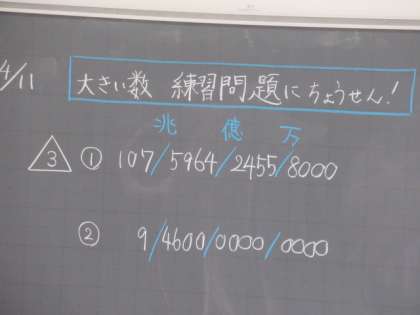 4/11
大きい数 練習問題にちょうせん!
兆 億 万
3 ① 107/5964/2455/8000
② 9/4600/0000/0000